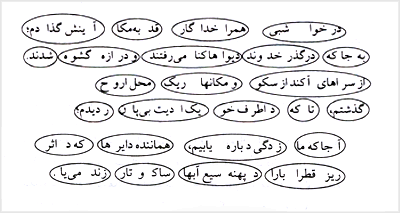 در خوا شبی همرا خدا گار قد به مکا آ ینش گذا دم؛
به جا که درگذر خد وند دیوا ها کنا می‌رفتند و در ازه گشوه شدند.
از سر اهای أکند از سکو و مکانها ریک محل ارو ح
گذشتم، تا که د اطرف خو یک ا دیت بی‌پا ن ر دیدم؟
أ جا که ما ز دگی د باره یابیم، هماننده دایر ها که د اثر
ریز قطرا بارا د پهنه سیع آبها سا ک و تار زند می‌یا .